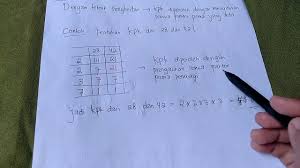 Dengan teknik → KPK diperoleh dengan mengalikan semua faktor prima yang
Contoh : Tentukan KPK dari 28 dan 42!
28 42
2 14 21
2 7 21
3 7 7
7
→ KPK diperoleh dengan
perkalian semua faktor
prima
Jadi KPK dari 28 dan 42 = 2 x 2 x 3 x 7 =